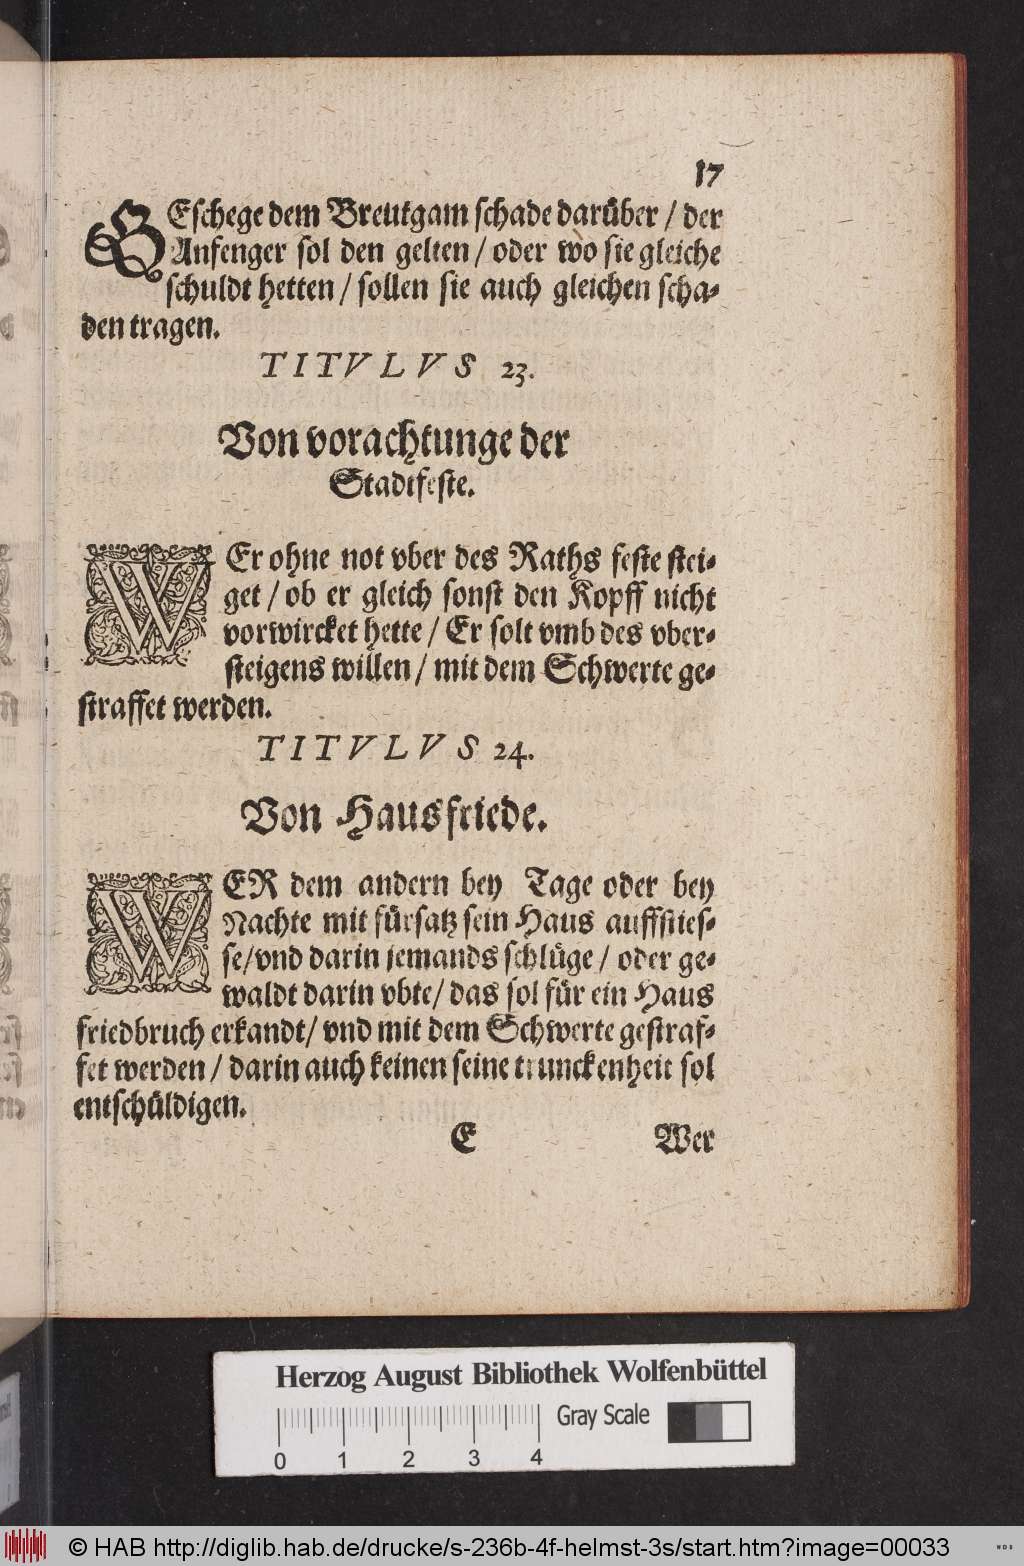 17
GEschege dem Breutgam schade darüber / der
Anfenger sol den gelten / oder wo sie gleiche
schuldt hetten / sollen sie auch gleichen scha-
den tragen.
TITVLVS 23.
Von vorachtunge der
Stadtfeste.
WEr ohne not vber des Raths feste stei-
get / ob er gleich sonst den Kopff nicht
vorwircket hette / Er solt vmb des vber-
steigens willen / mit dem Schwerte ge-
straffet werden.
TITVLVS 24.
Von Hausfriede.
WER dem andern bey Tage oder bey
Nachte mit fürsatz sein Haus auffsties-
se / vnd darin jemands schlüge / oder ge-
waldt darin vbte / das sol für ein Haus
friedbruch erkandt / vnd mit dem Schwerte gestraf-
fet werden / darin auch keinen seine trunckenheit sol
entschüldigen.
E Wer
Herzog August Bibliothek Wolfenbüttel
Gray Scale
0 1 2 3 4
© HAB http://diglib.hab.de/drucke/s-236b-4f-helmst-3s/start.htm?image=00033